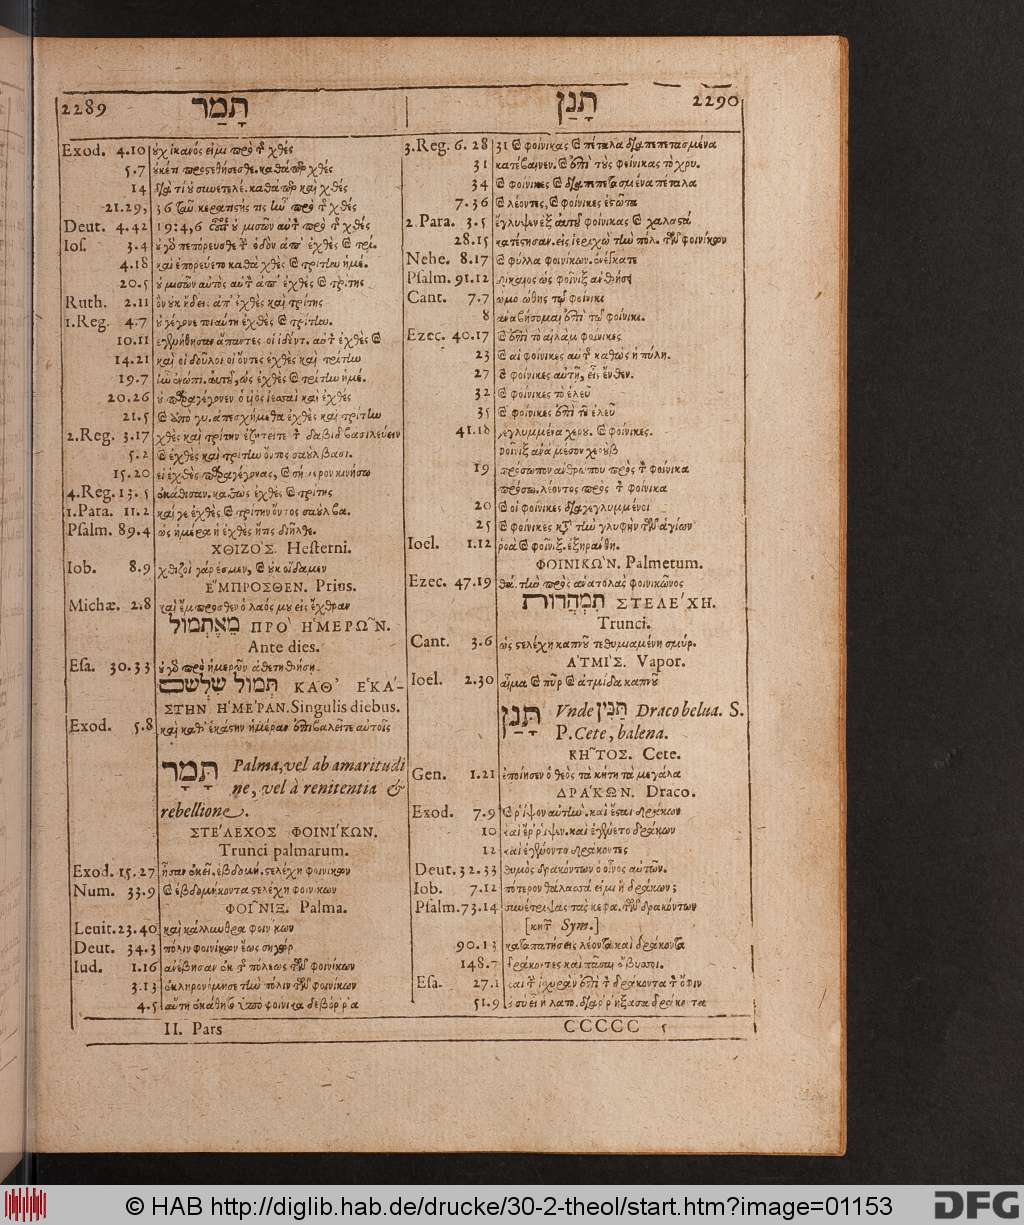 2289 תָּמַר
Exod. 4.10 οὐχ ἱκανός εἰμι πρὸ τῆς χθὲς
5.7 οὐκέτι προστεθήσεσθε. καθάπερ χθὲς
14 διὰ τί οὐ συνετελέ. καθάπερ καὶ χθὲς
21.29, 36 ταῦ. κερατιστὴς ἦν πρὸ τῆς χθὲς
Deut. 4.42 19:4,6 οὐ μισῶν αὐτ πρὸ τῆς χθὲς
Ios. 3.4 οὐ γὸ πεπόρευσθε τ ὁδὸν ἀπ' ἐχθὲς καὶ τρί.
4.18 καὶ ἐπορεύετο καθὰ χθὲς καὶ τρίτην ἡμέ.
20.5 οὐ μισῶν αὐτὸς αὐτ ἀπ' ἐχθὲς καὶ τρίτης
Ruth. 2.11 ὃν οὐκ ᾔδεις ἀπ' ἐχθὲς καὶ τρίτης
1.Reg. 4.7 οὐ γέγονε τοιαύτη ἐχθὲς καὶ τρίτην.
10.11 ἐγενήθησαν ἅπαντες οἱ ἰδόντ. αὐτ ἐχθὲς καὶ
14.21 καὶ οἱ δοῦλοι οἱ ὄντες ἐχθὲς καὶ τρίτην
19.7 ἦν ἐνώπι. αὐτοῦ, ὡς ἐχθὲς καὶ τρίτην ἡμέ.
20.26 οὐ παραγέγονεν ὁ υἱὸς ἰεσσαὶ καὶ ἐχθὲς
21.5 καὶ ἀπὸ γυ. ἀπεσχήμεθα ἐχθὲς καὶ τρίτην
2.Reg. 3.17 χθὲς καὶ τρίτην ἐζητεῖτε τ δαβὶδ βασιλεύειν
5.2 καὶ ἐχθὲς καὶ τρίτην ὄντος σαοὺλ βασι.
15.20 εἰ ἐχθὲς παραγέγονας, καὶ σήμερον κινήσω
4.Reg. 13.5 ἐκάθισαν. καθὼς ἐχθὲς καὶ τρίτης
1.Para. 11.2 καί γε ἐχθὲς καὶ τρίτην ὄντος σαοὺλ βα.
Psalm. 89.4 ὡς ἡμέρα ἡ ἐχθὲς ἥτις διῆλθε.
ΧΘΙΖΟ'Σ. Hesterni.
Iob. 8.9 χθιζοὶ γάρ ἐσμεν, καὶ οὐκ οἴδαμεν
Ε῎ΜΠΡΟΣΘΕΝ. Prius.
Michæ. 2.8 καὶ ἔμπροσθεν ὁ λαός μου εἰς ἔχθραν
מֵאֶתְמוּל ΠΡΟ' Η῾ΜΕΡΩ῀Ν.
Ante dies.
Esa. 30.33 οὐ γὸ πρὸ ἡμερῶν ἀπετήθησῃ.
תְּמוֹל שִׁלְשֹׁם ΚΑΘ' Ε῾ΚΑ'-
ΣΤΗΝ Η῾ΜΕ'ΡΑΝ. Singulis diebus.
Exod. 5.8 καὶ καθ' ἑκάστην ἡμέραν ἐπιβαλεῖτε αὐτοῖς
תָּמָר Palma, vel ab amaritudi
ne, vel à renitentia &
rebellione.
ΣΤΕ'ΛΕΧΟΣ ΦΟΙΝΙ'ΚΩΝ.
Trunci palmarum.
Exod. 15.27 ἦσαν ἐκεῖ. ἑβδομή. στελέχη φοινίκων
Num. 33.9 καὶ ἑβδομήκοντα στελέχη φοινίκων
ΦΟΙ῀ΝΙΞ. Palma.
Leuit. 23.40 καὶ κάλλυνθρα φοινίκων
Deut. 34.3 πόλιν φοινίκων ἕως σηγώρ
Iud. 1.16 ἀνέβησαν ἐκ τ πόλεως τῶν φοινίκων
3.13 ἐκληρονόμησε τὴν πόλιν τῶν φοινίκων
4.5 αὕτη ἐκάθητο ὑπὸ φοίνικα δεβόῤῥα
II. Pars
תָּנַן 2290
3.Reg. 6.28 31 καὶ φοίνικας καὶ πέταλα διαπεπετασμένα
31 κατέβαινεν. καὶ ἐπὶ τοὺς φοίνικας τὸ χρυ.
34 καὶ φοίνικες καὶ διαπεπετασμένα πέταλα
7.36 καὶ λέοντες, καὶ φοίνικες ἑστῶτα
2.Para. 3.5 ἔγλυψεν ἐξ αὐτοῦ φοίνικας καὶ χαλαστά
28.15 κατέστησαν. εἰς ἱεριχὼ τὴν πόλ. τῶν φοινίκων
Nehe. 8.17 καὶ φύλλα φοινίκων. ἐνέγκατε
Psalm. 91.12 δίκαιος ὡς φοῖνιξ ἀνθήσει
Cant. 7.7 ὡμοιώθης τῷ φοίνικι
8 ἀναβήσομαι ἐπὶ τῷ φοίνικι.
Ezec. 40.17 καὶ ἐπὶ τὸ αἰλὰμ φοίνικες
23 καὶ αἱ φοίνικες αὐτ καθὼς ἡ πύλη.
27 καὶ φοίνικες αὐτῇ, εἷς ἔνθεν.
32 καὶ φοίνικες τὸ ἐλεῦ
35 καὶ φοίνικες ἐπὶ τοῦ ἐλεῦ
41.18 γεγλυμμένα χερου. καὶ φοίνικες.
φοῖνιξ ἀνὰ μέσον χεροὺβ
19 πρόσωπον ἀνθρώπου πρὸς τ φοίνικα
πρόσω. λέοντος πρὸς τ φοίνικα
20 καὶ οἱ φοίνικες διαγεγλυμμένοι
25 καὶ φοίνικες κατὰ τὴν γλυφὴν τῶν ἁγίων
Ioel. 1.12 ῥοὰ καὶ φοῖνιξ. ἐξηράνθη.
ΦΟΙΝΙΚΩ῀Ν. Palmetum.
Ezec. 47.19 τὰ πρὸς ἀνατολὰς φοινικῶνος
תִּמְהֲרוֹת ΣΤΕΛΕ'ΧΗ.
Trunci.
Cant. 3.6 ὡς στελέχη καπνοῦ τεθυμιαμένη σμύρ.
Α᾿ΤΜΙ'Σ. Vapor.
Ioel. 2.30 αἷμα καὶ πῦρ καὶ ἀτμίδα καπνοῦ
תָּנַן Vnde תַּנִּין Draco belua. S.
P. Cete, balena.
ΚΗ῀ΤΟΣ. Cete.
Gen. 1.21 ἐποίησεν ὁ θεὸς τὰ κήτη τὰ μεγάλα
ΔΡΑ'ΚΩΝ. Draco.
Exod. 7.9 καὶ ῥίψον αὐτὴν. καὶ ἔσται δράκων
10 καὶ ἔῤῥιψεν. καὶ ἐγένετο δράκων
12 καὶ ἐγένοντο δράκοντες
Deut. 32.33 θυμὸς δρακόντων ὁ οἶνος αὐτῶν.
Iob. 7.12 πότερον θάλασσά εἰμι ἢ δράκων;
Psalm. 73.14 συνέτριψας τὰς κεφα. τῶν δρακόντων
[κητ Sym.]
90.13 καταπατήσεις λέοντα καὶ δράκοντα
148.7 δράκοντες καὶ πᾶσαι ἄβυσσοι.
Esa. 27.1 καὶ τ ἰσχυρὰν ἐπὶ τ δράκοντα τ ὄφιν
51.9 οὐ σὺ εἶ ἡ λατο. διαῤῥήξασα δράκοντα
CCCCC 5
© HAB http://diglib.hab.de/drucke/30-2-theol/start.htm?image=01153
DFG